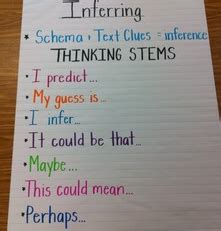 Inferring
* Schema + Text Clues = inference
THINKING STEMS
• I predict...
• My guess is...
• I infer...
• It could be that...
• Maybe...
• This could mean...
• Perhaps...